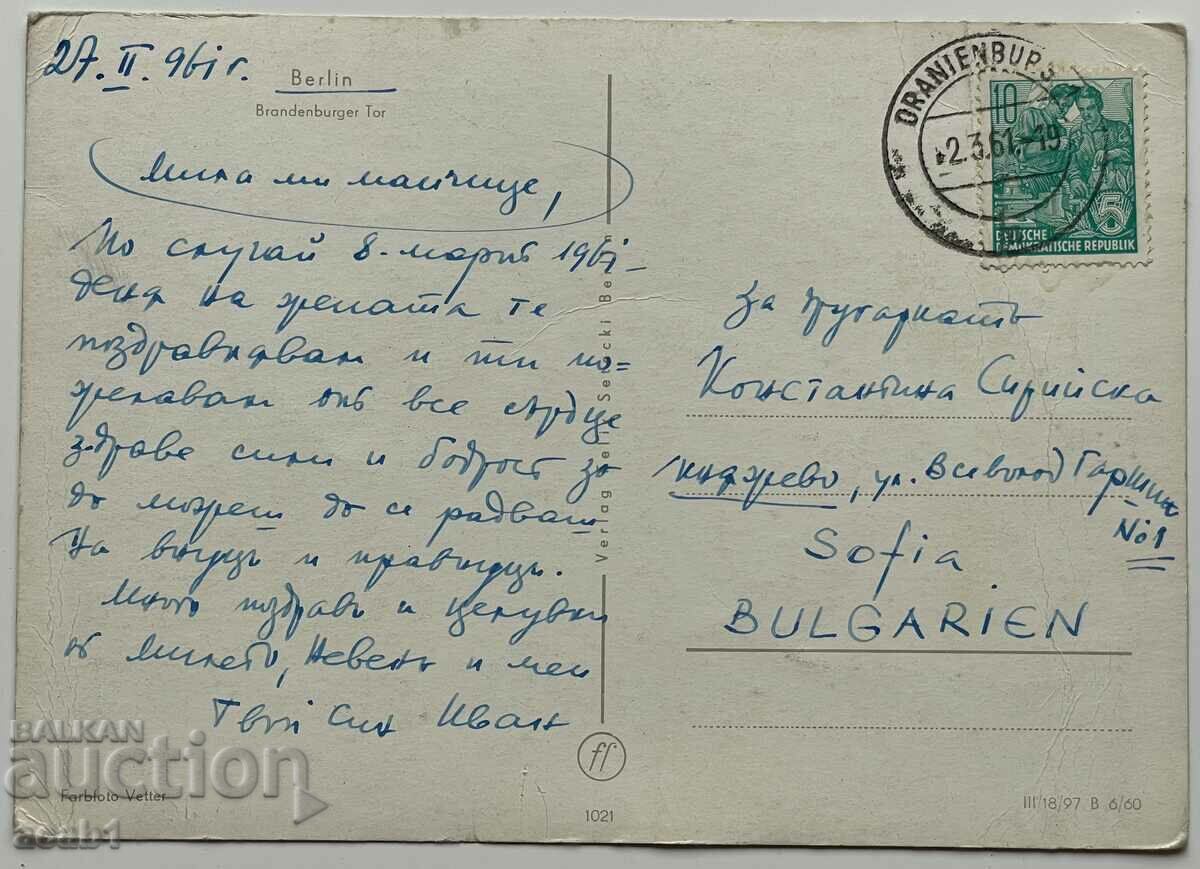 27.II.961г.
Berlin
Brandenburger Tor
Мила ми майчице,
По случай 8-март 1961-
деня на жената те
поздравявам и ти по=
желавам от все сърце
здраве сили и бодрост за
да можеш да се радваш
на внуци и правнуци.
Много поздрави и целувки
от Милето, Невена и мен
Твой син Иван
Farbfoto Vetter
1021
ff
Verlag Felix Setecki Berlin
ORANIENBURG
2.3.61.-19
10
5
DEUTSCHE
DEMOKRATISCHE REPUBLIK
За другарката
Константина Сирийска
Княжево, ул. Всеволод Гаршин
№1
Sofia
BULGARIEN
III/18/97 B 6/60
BALKAN
auction
aoab1